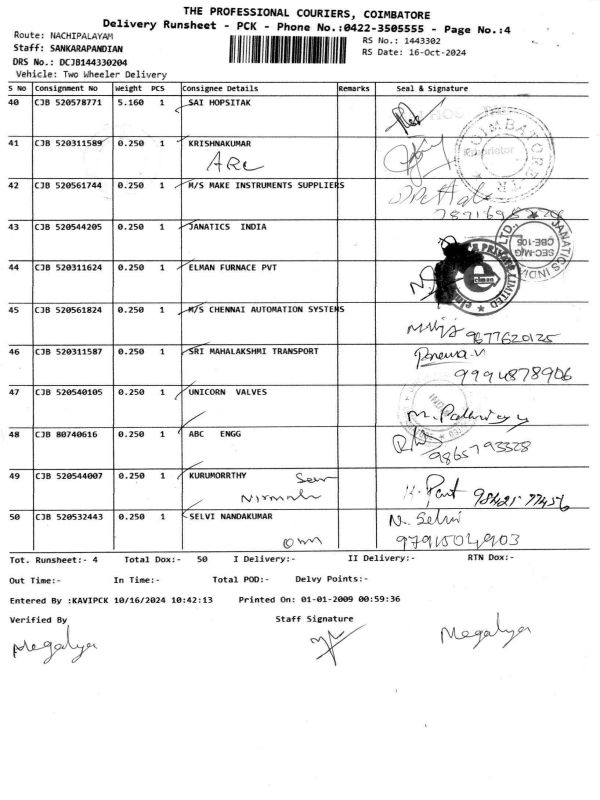 THE PROFESSIONAL COURIERS, COIMBATORE
Delivery Runsheet - PCK - Phone No.:0422-3505555 - Page No.:4
Route: NACHIPALAYAM RS No.: 1443302
Staff: SANKARAPANDIAN RS Date: 16-Oct-2024
DRS No.: DCJB144330204
Vehicle: Two Wheeler Delivery
S No Consignment No Weight PCS Consignee Details Remarks Seal & Signature
40 CJB 520578771 5.160 1 SAI HOPSITAK
41 CJB 520311589 0.250 1 KRISHNAKUMAR
ARC
COIMBATORE
Proprietor
42 CJB 520561744 0.250 1 M/S MAKE INSTRUMENTS SUPPLIERS
43 CJB 520544205 0.250 1 JANATICS INDIA
JANATICS INDIA
SEC-M/G
CBE-105
44 CJB 520311624 0.250 1 ELMAN FURNACE PVT
PRIVATE LIMITED
elman
45 CJB 520561824 0.250 1 M/S CHENNAI AUTOMATION SYSTEMS
9677620125
46 CJB 520311587 0.250 1 SRI MAHALAKSHMI TRANSPORT
9994878906
47 CJB 520540105 0.250 1 UNICORN VALVES
48 CJB 80740616 0.250 1 ABC ENGG
9865793328
49 CJB 520544007 0.250 1 KURUMORRTHY
Nirmala
50 CJB 520532443 0.250 1 SELVI NANDAKUMAR
N. Selvi
9791504903
Tot. Runsheet:- 4 Total Dox:- 50 I Delivery:- II Delivery:- RTN Dox:-
Out Time:- In Time:- Total POD:- Delvy Points:-
Entered By :KAVIPCK 10/16/2024 10:42:13 Printed On: 01-01-2009 00:59:36
Verified By Staff Signature
Megalya Megalya